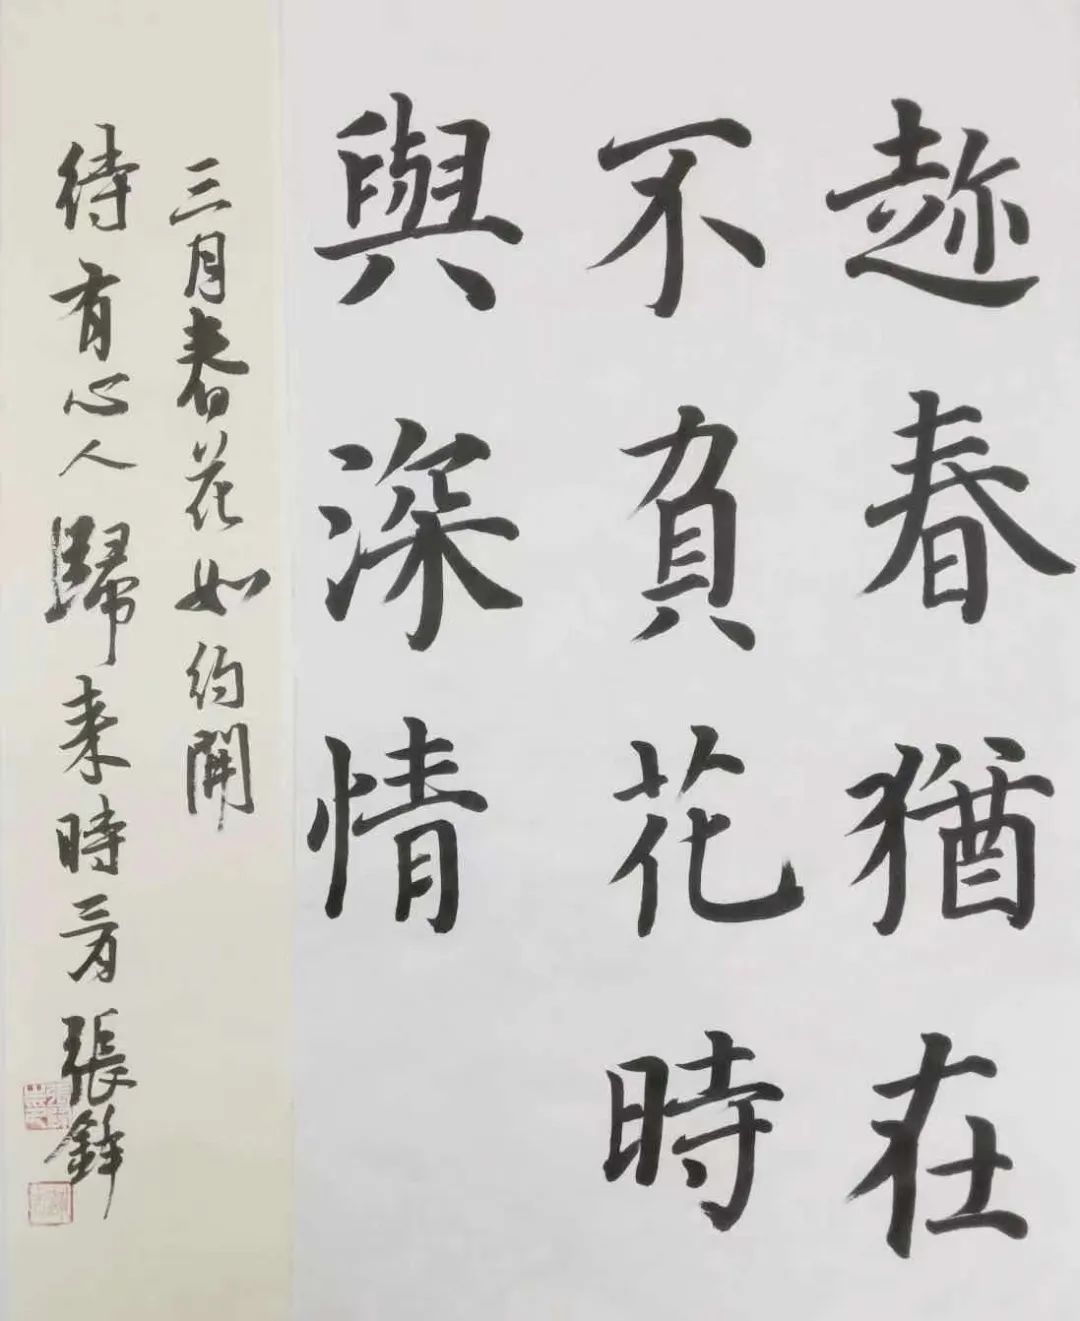 趂春猶在
不負花時
與深情
三月春花如約開
待有心人歸来時 張鋒